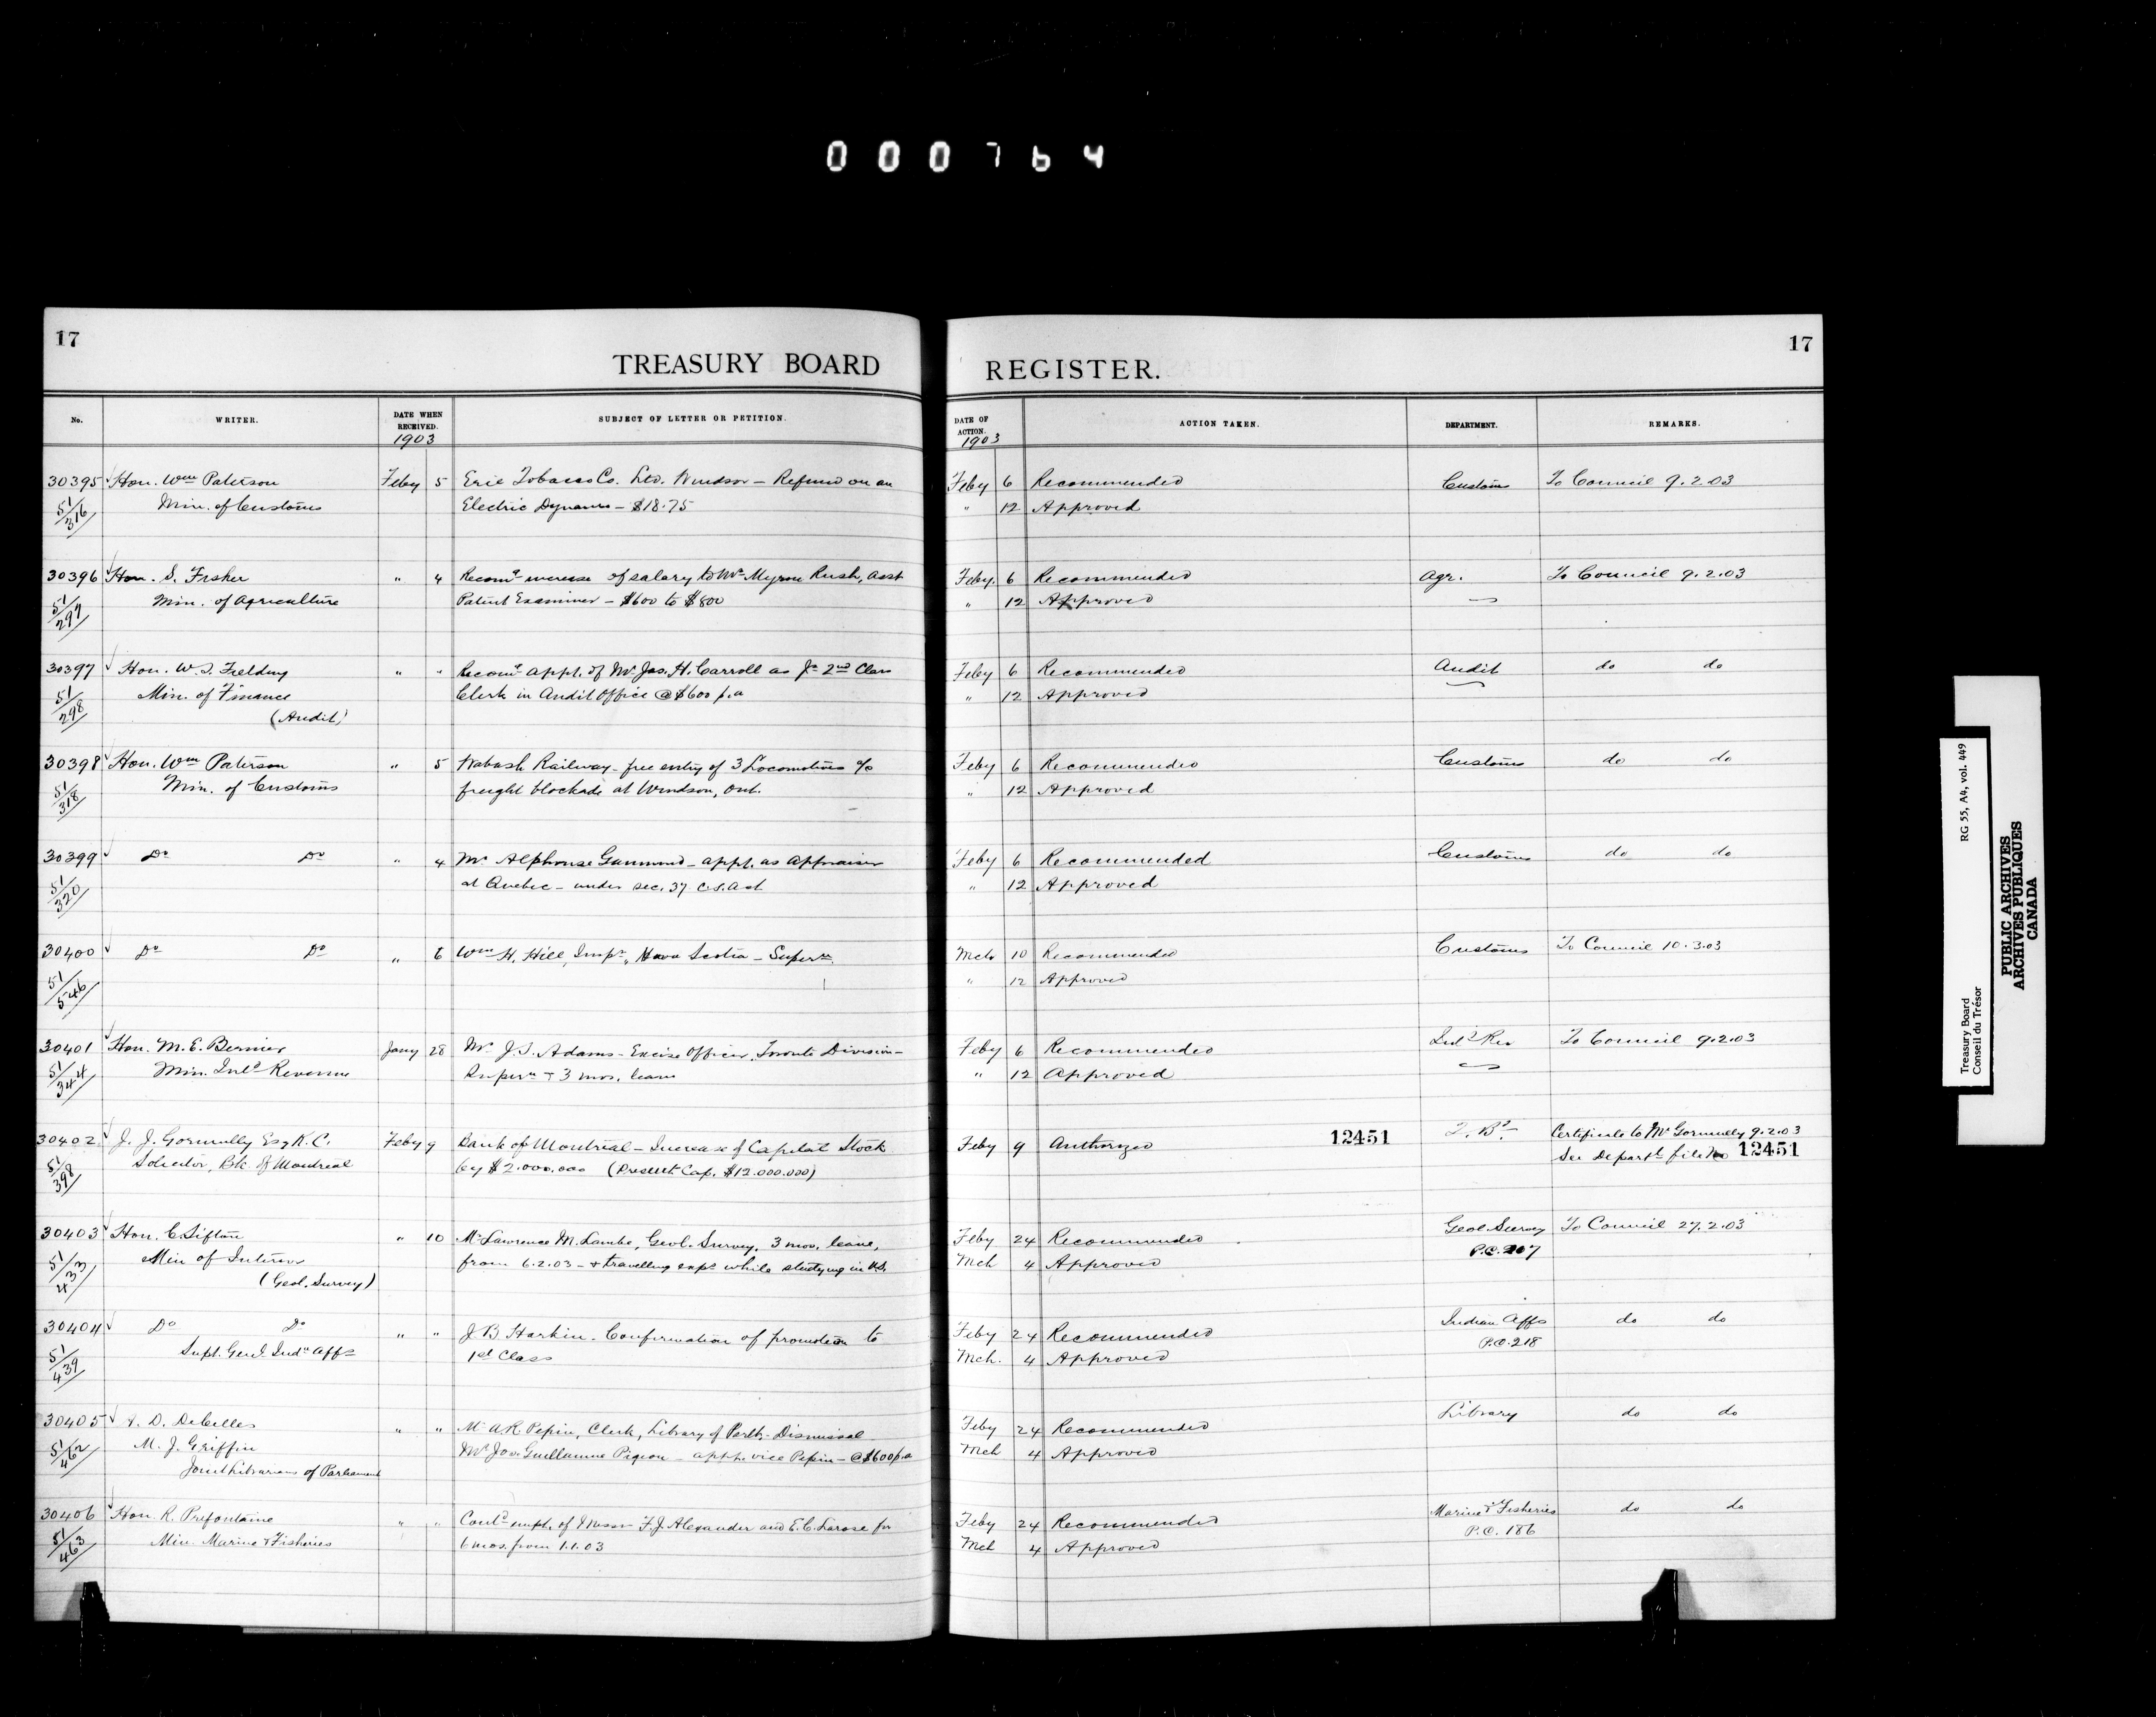 000764
17
TREASURY BOARD REGISTER.
17
No. WRITER. DATE WHEN RECEIVED. SUBJECT OF LETTER OR PETITION. DATE OF ACTION. ACTION TAKEN. DEPARTMENT. REMARKS.
1903 1903
30395 Hon. Wm Paterson Feby 5 Erie Tobacco Co. Ltd. Windsor — Refund on an Feby 6 Recommended Customs To Council 9.2.03
51/316 Min. of Customs Electric Dynamo — $18.75 " 12 Approved
30396 Hon. S. Fisher " 4 Recomg increase of salary to Mr Myron Rush, Asst Feby. 6 Recommended Agr. To Council 9.2.03
51/297 Min. of Agriculture Patent Examiner — $600 to $800 " 12 Approved
30397 Hon. W. S. Fielding " " Recomg appt. of Mr Jas. H. Carroll as Jr 2nd Class Feby 6 Recommended Audit do do
51/298 Min. of Finance Clerk in Audit Office @ $600 p.a " 12 Approved
(Audit)
30398 Hon. Wm Paterson " 5 Wabash Railway - free entry of 3 Locomotives a/c Feby 6 Recommended Customs do do
51/318 Min. of Customs freight blockade at Windsor, Ont. " 12 Approved
30399 Do Do " 4 Mr Alphonse - appt. as Appraiser Feby 6 Recommended Customs do do
51/320 at Quebec — under sec. 37 C.S. Act " 12 Approved
30400 Do Do " 6 Wm H. Hill, Inspr, Nova Scotia — Superan Mch 10 Recommended Customs To Council 10.3.03
51/546 " 12 Approved
30401 Hon. M. E. Bernier Jany 28 Mr J. S. Adams - Excise Officer, Toronto Division — Feby 6 Recommended Inld Rev To Council 9.2.03
51/344 Min. Inld Revenue Supern + 3 mos. leave " 12 Approved
30402 J. J. Gormully Esq K.C. Feby 9 Bank of Montreal — Increase of Capital Stock Feby 9 Authorized 12451 T. Bd. Certificate to Mr Gormully 9.2.03
51/398 Solicitor, Bk. of Montreal by $2.000.000 (Present Cap. $12.000.000) See Departl file No 12451
30403 Hon. C. Sifton " 10 Mr Lawrence M. Lambe, Geol. Survey, 3 mos. leave, Feby 24 Recommended Geol. Survey To Council 27.2.03
51/433 Min of Interior from 6.2.03 — & travelling exps while studying in U.S. Mch 4 Approved P.C. 207
(Geol. Survey)
30404 Do Do " " J B Harkin - Confirmation of promotion to Feby 24 Recommended Indian Affs do do
51/439 Supt. Genl. Indn Affs 1st Class Mch. 4 Approved P.C. 218
30405 A. D. DeCelles " " Mr A R Pepin, Clerk, Library of Parlt - Dismissal Feby 24 Recommended Library do do
51/462 M. J. Griffin Mr Jos. Guillaume Pigeon - appt. vice Pepin — @ $600 p.a Mch 4 Approved
Joint Librarians of Parliament
30406 Hon. R. Prefontaine " " Contd empt. of Messrs F. J. Alexander and E. C. Larose for Feby 24 Recommended Marine & Fisheries do do
51/463 Min. Marine & Fisheries 6 mos. from 1.1.03 Mch 4 Approved P.C. 186
RG 55, A4, vol. 449
Treasury Board
Conseil du Trésor
PUBLIC ARCHIVES
ARCHIVES PUBLIQUES
CANADA